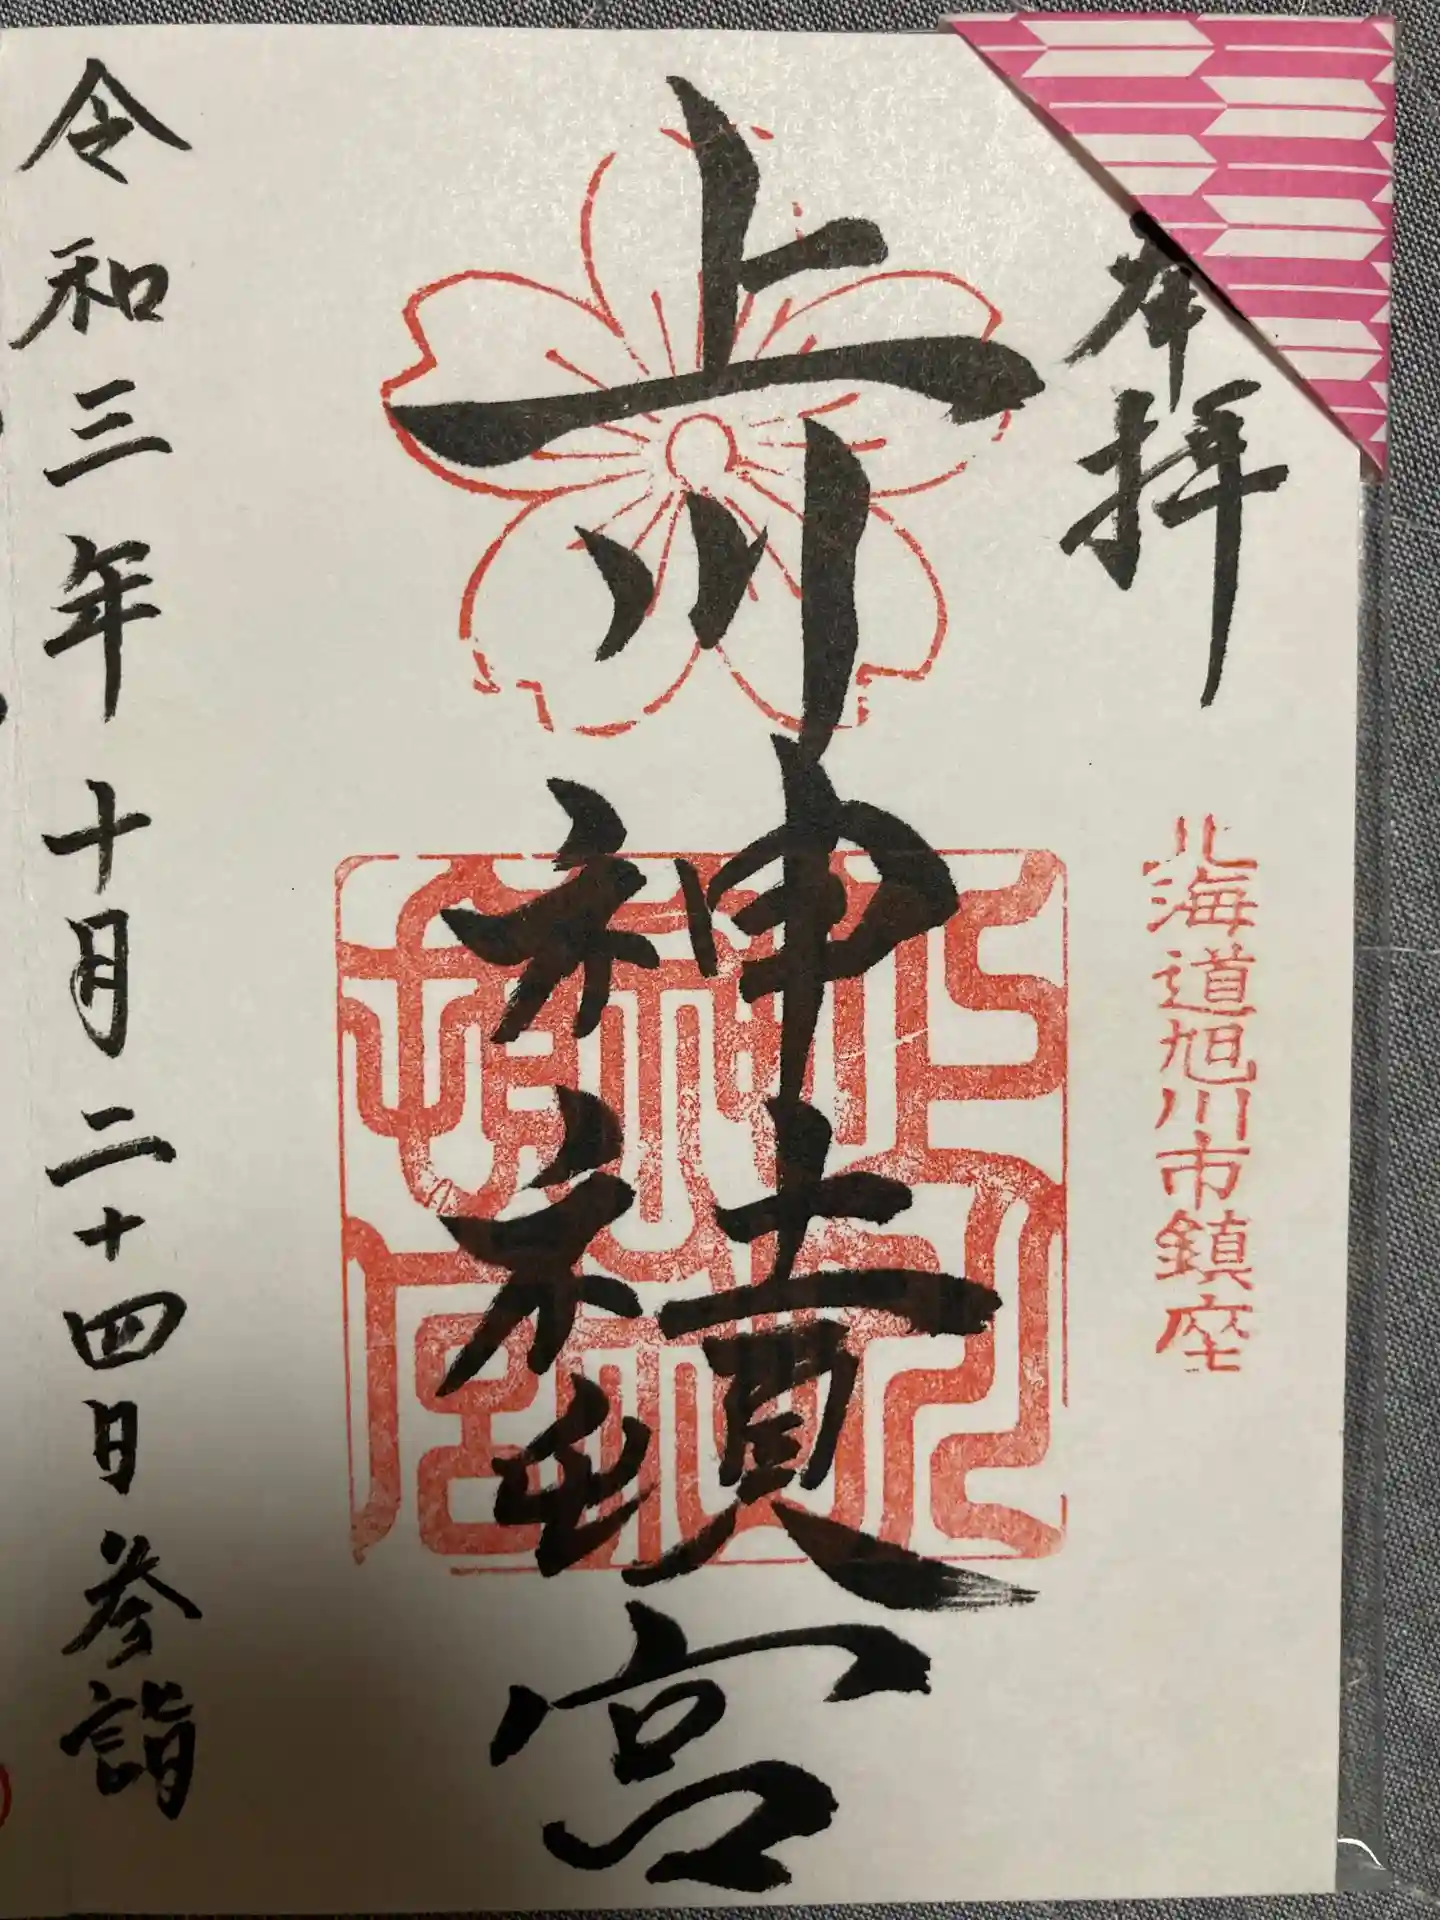 奉拝
北海道旭川市鎮座
上川神社頓宮
上川
神社
頓宮
令和三年十月二十四日参詣